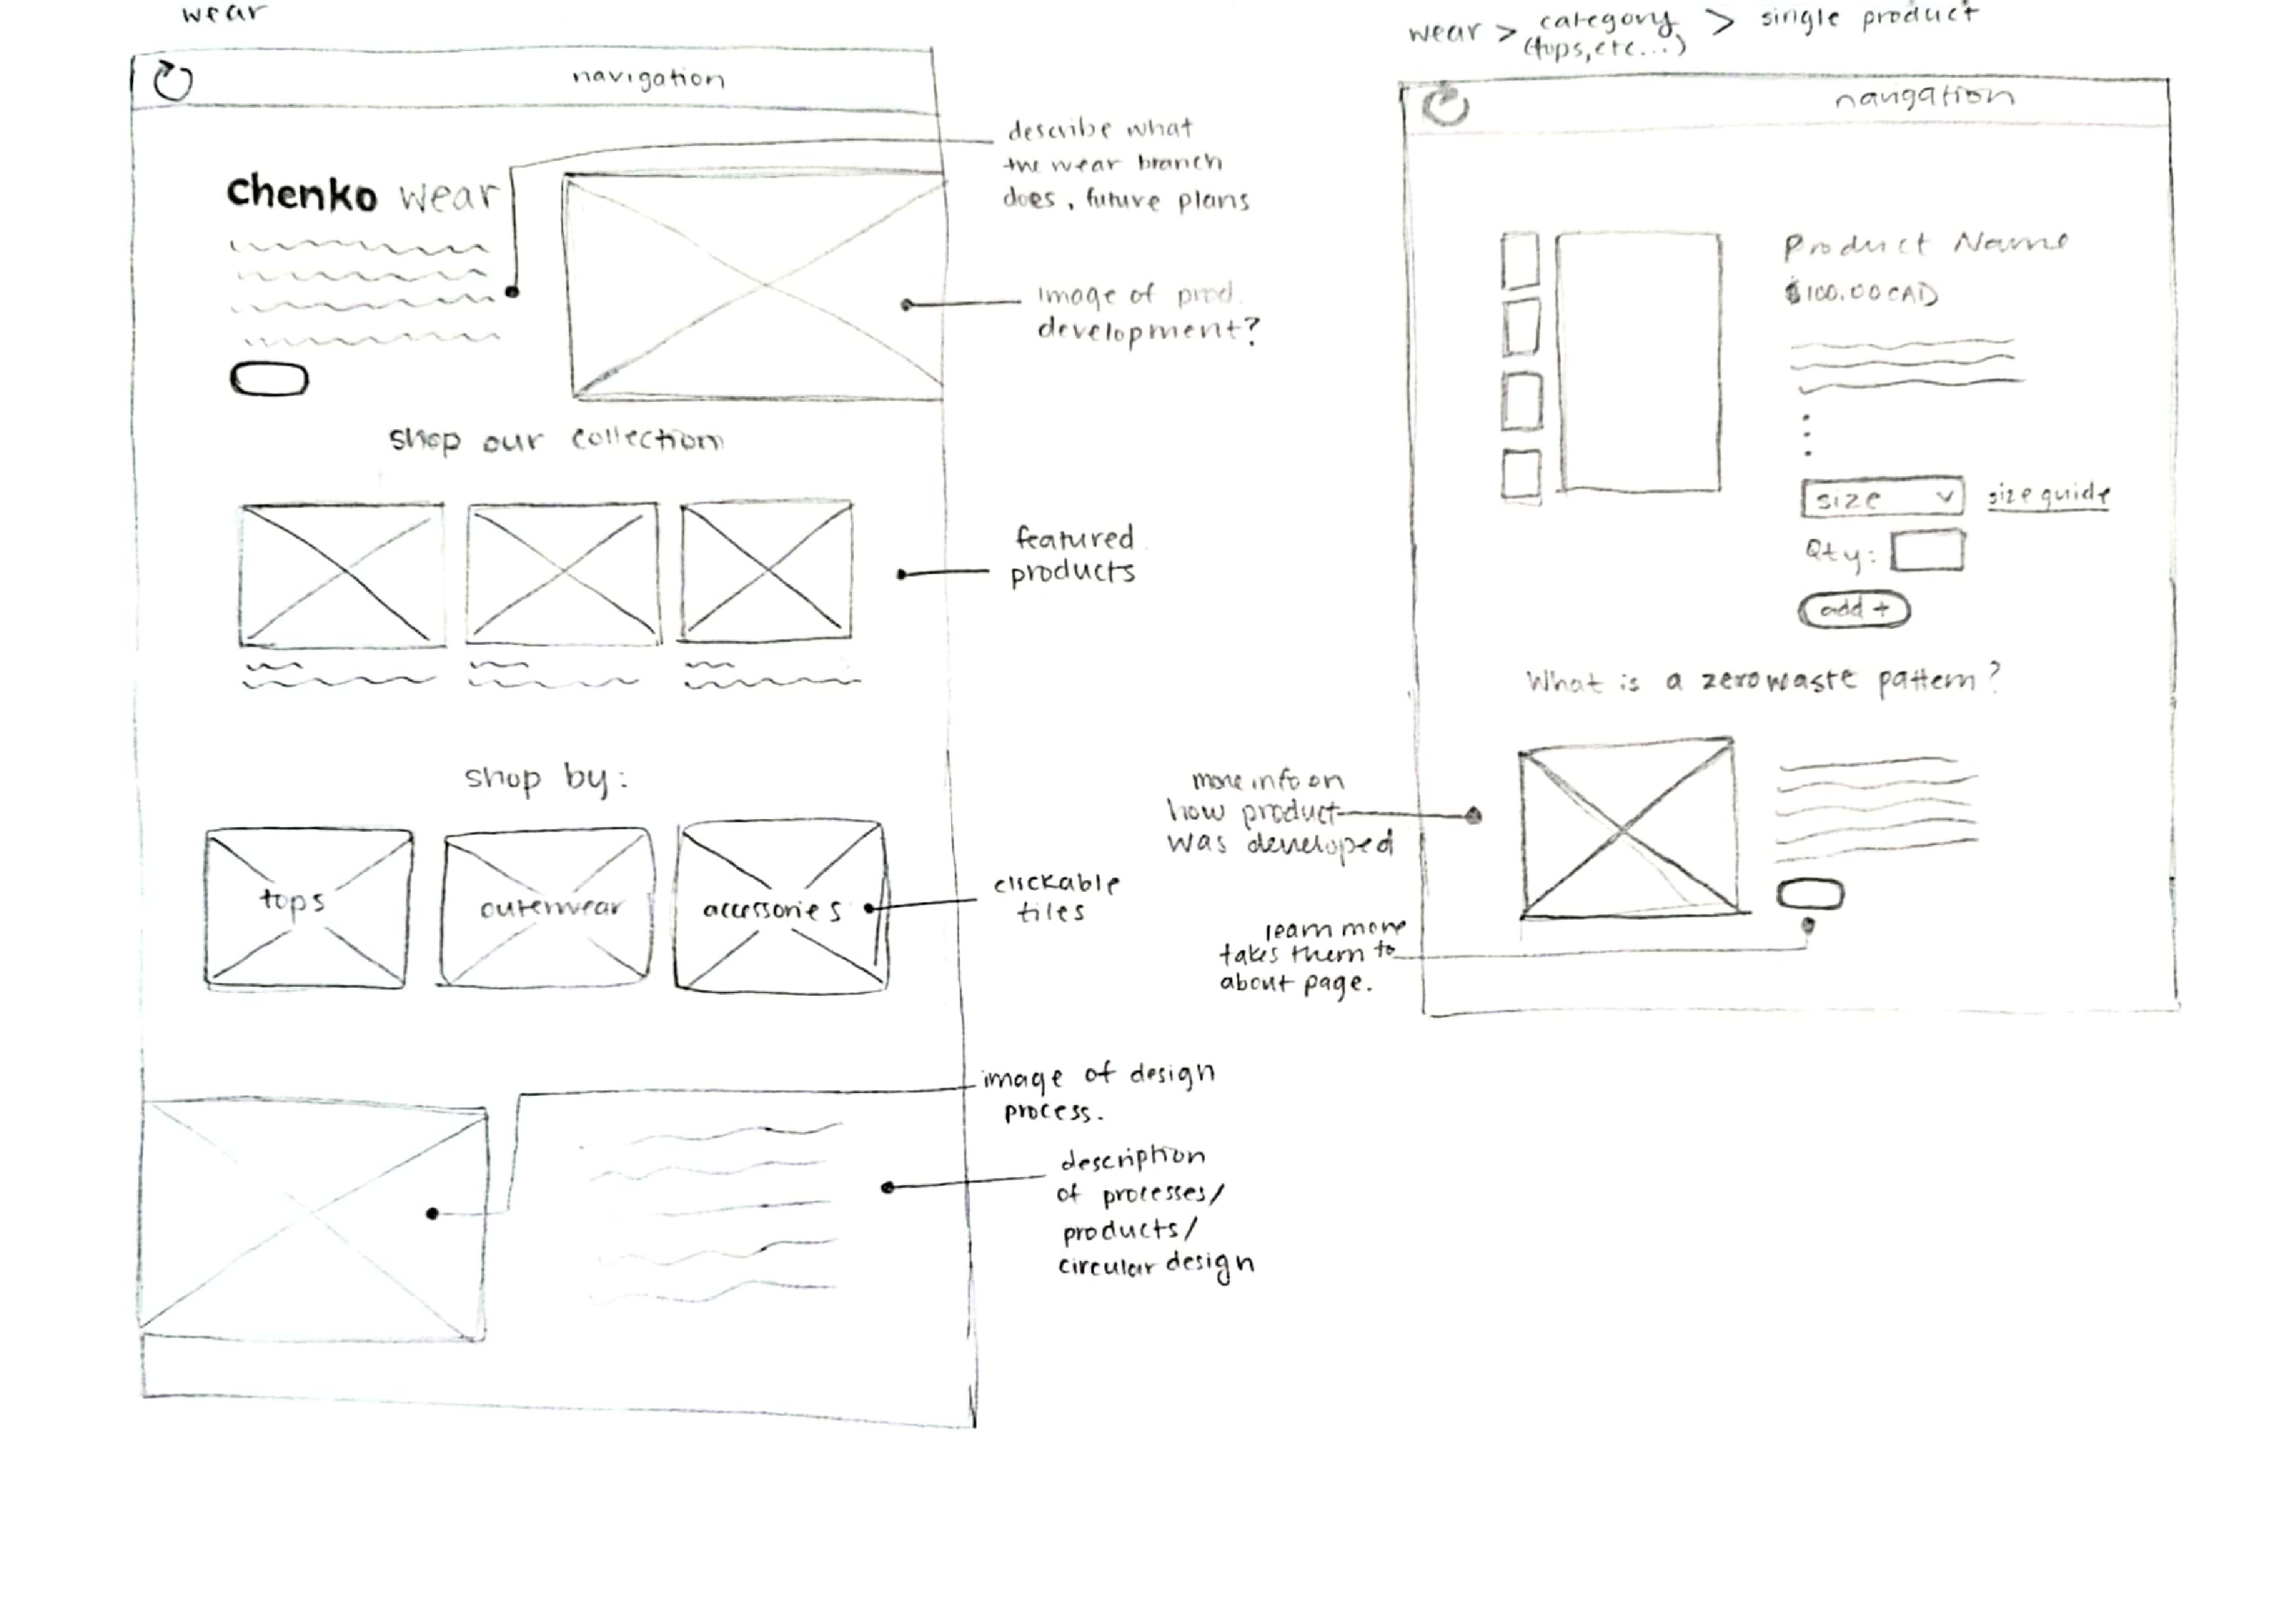 wear
navigation
chenko wear
describe what
the wear branch
does, future plans
image of prod.
development?
shop our collection
featured
products
shop by:
tops
outerwear
accessories
clickable
tiles
image of design
process.
description
of processes/
products/
circular design
wear > category > single product
(tops, etc...)
navigation
Product Name
$100.00 CAD
size
size guide
Qty:
add +
What is a zero waste pattern?
more info on
how product
was developed
learn more
takes them to
about page.